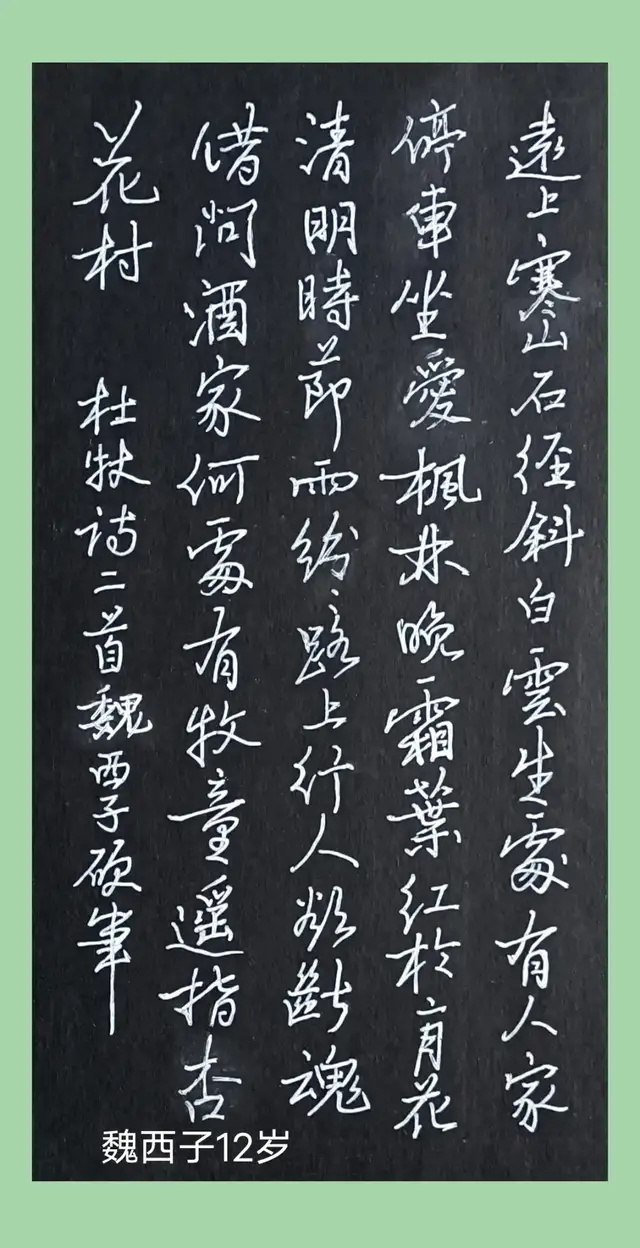 遠上寒山石径斜白雲生處有人家
停車坐愛楓林晚霜葉红於二月花
清明時節雨紛々路上行人欲斷魂
借問酒家何處有牧童遥指杏
花村 杜牧诗二首魏西子硬筆
魏西子12岁